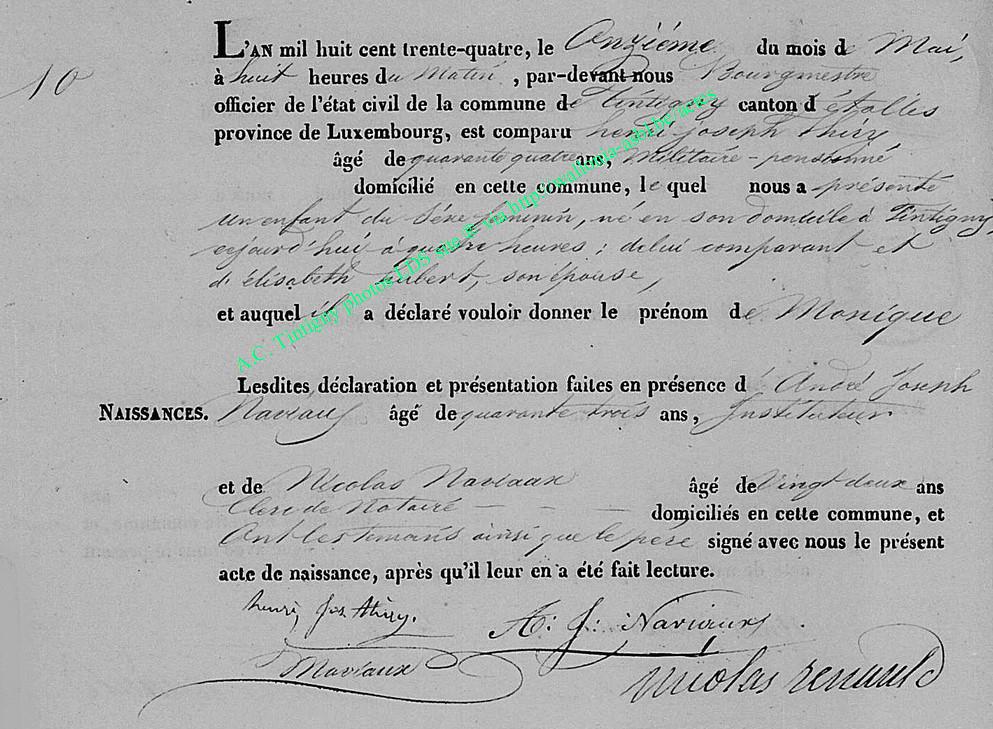 L'AN mil huit cent trente-quatre, le Onziéme du mois de Mai,
10
à huit heures du Matin, par-devant nous Bourgmestre
officier de l'état civil de la commune de Tintigny canton d'étalles
province de Luxembourg, est comparu henri joseph thiry
âgé de quarante quatre ans, Militaire-pensionné
domicilié en cette commune, le quel nous a présenté
un enfant du séxe feminin, né en son domicile à Tintigny,
cejourd'hui à quatre heures; de lui comparant et
d'élisabeth hubert, son épouse,
et auquel il a déclaré vouloir donner le prénom de Monique
Lesdites déclaration et présentation faites en présence d'André Joseph
NAISSANCES. Naviaux âgé de quarante trois ans, Instituteur
et de Nicolas Naviaux âgé de Vingt deux ans
Clerc de Notaire - - - domiciliés en cette commune, et
Ont les temoins ainsi que le père signé avec nous le présent
acte de naissance, après qu'il leur en a été fait lecture.
henri Jos thiry. A: J: Naviaux.
Naviaux nicolas renauld
A.C. Tintigny photos LDS site & via http:wallonia-asbl.be/actes